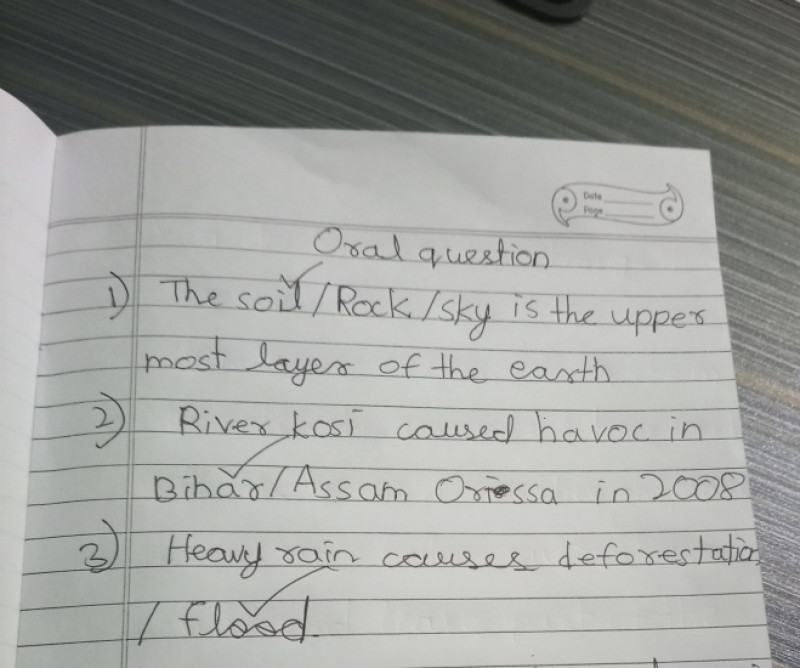 Date
Page
Oral question
1) The soil/Rock/sky is the upper
most layer of the earth
2) River kosi caused havoc in
Bihar/Assam Orissa in 2008
3) Heavy rain causes deforestation
/ flood